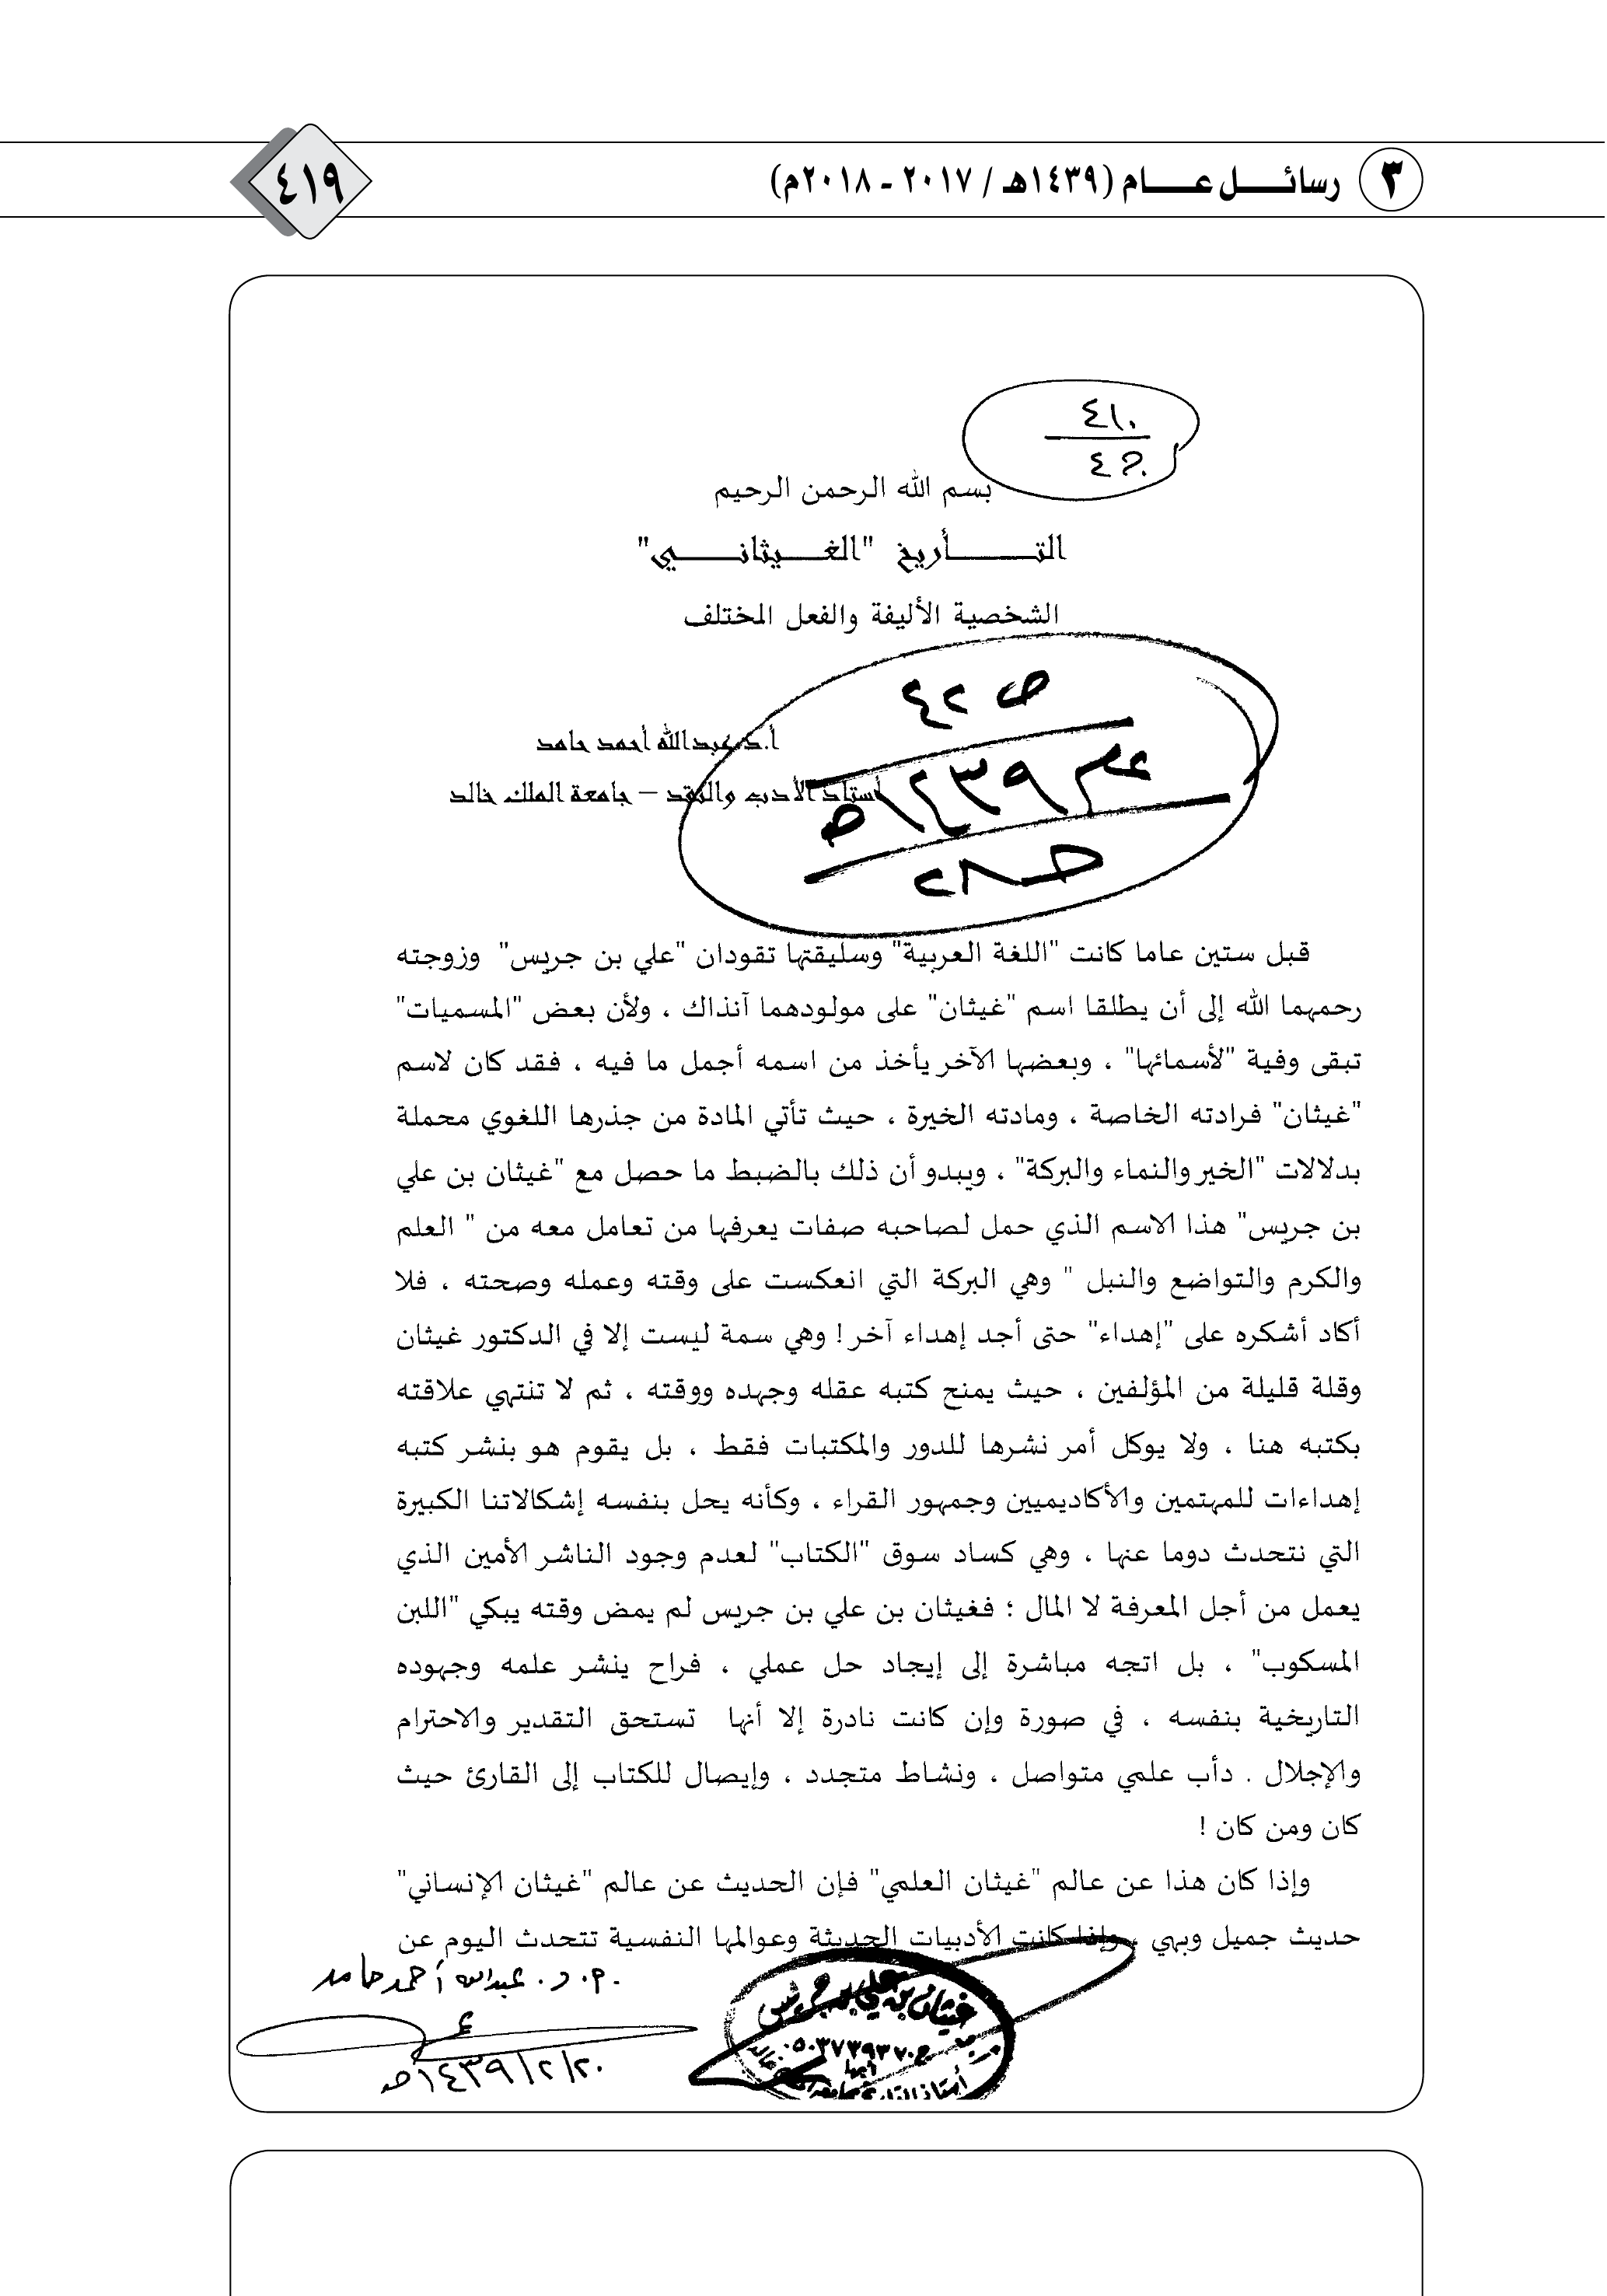 ٣ رسائــــل عــــام (١٤٣٩هـ / ٢٠١٧ ـ ٢٠١٨م)
٤١٩
٤١٠
بسم الله الرحمن الرحيم
التـــــــأريخ "الغـــيثانــــــي"
الشخصية الأليفة والفعل المختلف
ص ٤٢
عام ١٤٣٩هـ
أ.د/عبدالله أحمد حامد
أستاذ الأدب والنقد – جامعة الملك خالد
قبل ستين عاما كانت "اللغة العربية" وسليقتها تقودان "علي بن جريس" وزوجته
رحمهما الله إلى أن يطلقا اسم "غيثان" على مولودهما آنذاك ، ولأن بعض "المسميات"
تبقى وفية "لأسمائها" ، وبعضها الآخر يأخذ من اسمه أجمل ما فيه ، فقد كان لاسم
"غيثان" فرادته الخاصة ، ومادته الخيرة ، حيث تأتي المادة من جذرها اللغوي محملة
بدلالات "الخير والنماء والبركة" ، ويبدو أن ذلك بالضبط ما حصل مع "غيثان بن علي
بن جريس" هذا الاسم الذي حمل لصاحبه صفات يعرفها من تعامل معه من " العلم
والكرم والتواضع والنبل " وهي البركة التي انعكست على وقته وعمله وصحته ، فلا
أكاد أشكره على "إهداء" حتى أجد إهداء آخر! وهي سمة ليست إلا في الدكتور غيثان
وقلة قليلة من المؤلفين ، حيث يمنح كتبه عقله وجهده ووقته ، ثم لا تنتهي علاقته
بكتبه هنا ، ولا يوكل أمر نشرها للدور والمكتبات فقط ، بل يقوم هو بنشر كتبه
إهداءات للمهتمين والأكاديميين وجمهور القراء ، وكأنه يحل بنفسه إشكالاتنا الكبيرة
التي نتحدث دوما عنها ، وهي كساد سوق "الكتاب" لعدم وجود الناشر الأمين الذي
يعمل من أجل المعرفة لا المال ؛ فغيثان بن علي بن جريس لم يمض وقته يبكي "اللبن
المسكوب" ، بل اتجه مباشرة إلى إيجاد حل عملي ، فراح ينشر علمه وجهوده
التاريخية بنفسه ، في صورة وإن كانت نادرة إلا أنها تستحق التقدير والاحترام
والإجلال . دأب علمي متواصل ، ونشاط متجدد ، وإيصال للكتاب إلى القارئ حيث
كان ومن كان !
وإذا كان هذا عن عالم "غيثان العلمي" فإن الحديث عن عالم "غيثان الإنساني"
حديث جميل وبهي ، وإذا كانت الأدبيات الحديثة وعوالمها النفسية تتحدث اليوم عن
أ. د. عبدالله أحمد حامد
١٤٣٩/٢/٢٠هـ
غيثان بن علي بن جريس
ج ٠٥٠٣٧٣٩٣٧٠
أبها